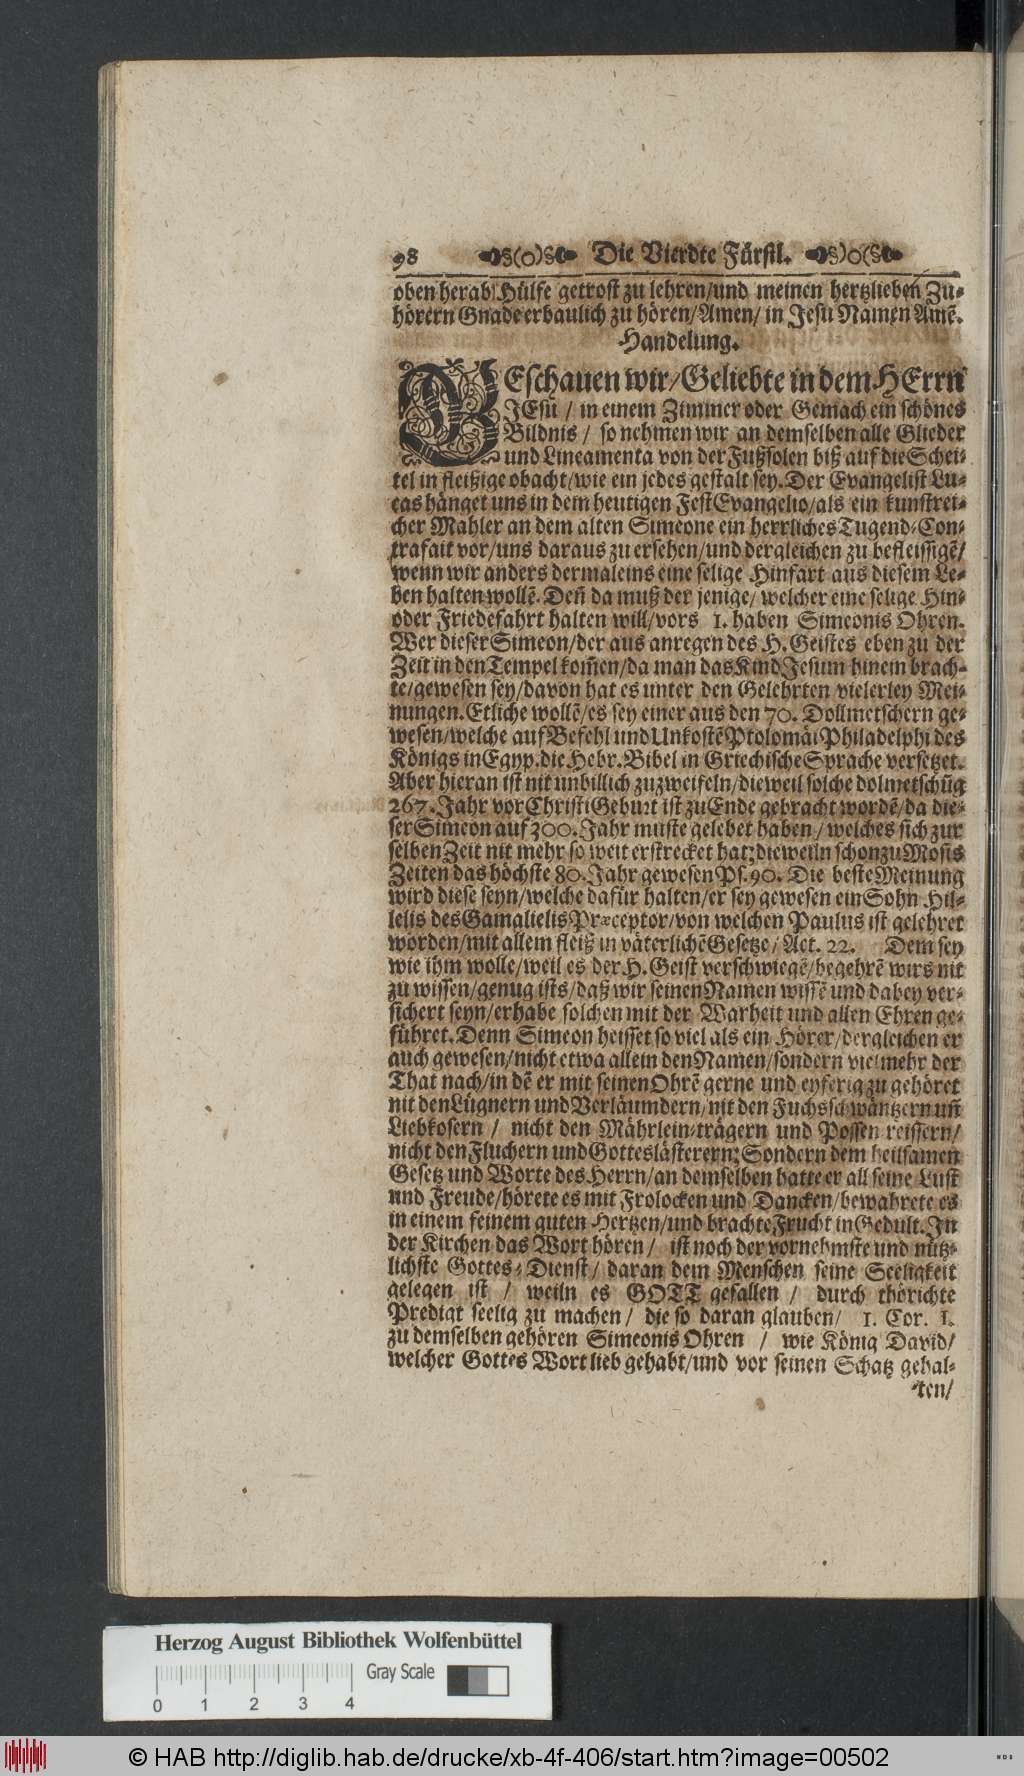 98 §(o)§ Die Vierdte Fürstl. §)o(§
oben herab Hülfe getrost zu lehren/und meinen hertzlieben Zu-
hörern Gnade erbaulich zu hören/Amen/ in Jesu Namen Amẽ.
Handelung.
BEschauen wir/Geliebte in dem HErrn
JEsu / in einem Zimmer oder Gemach ein schönes
Bildnis / so nehmen wir an demselben alle Glieder
und Lineamenta von der Fußsolen biß auf die Schei-
tel in fleißige obacht/wie ein jedes gestalt sey. Der Evangelist Lu-
cas hänget uns in dem heutigen Fest Evangelio/als ein kunstrei-
cher Mahler an dem alten Simeone ein herrliches Tugend-Con-
trafait vor/uns daraus zu ersehen/und dergleichen zu befleissigẽ/
wenn wir anders dermaleins eine selige Hinfart aus diesem Le-
ben halten wollẽ. Deñ da muß der jenige/ welcher eine selige Hin-
oder Friedefahrt halten will/vors 1. haben Simeonis Ohren.
Wer dieser Simeon/der aus anregen des H. Geistes eben zu der
Zeit in den Tempel kom̃en/da man das Kind Jesum hinein brach-
te/gewesen sey/davon hat es unter den Gelehrten vielerley Mei-
nungen. Etliche wollẽ/es sey einer aus den 70. Dollmetschern ge-
wesen/welche auf Befehl und Unkostẽ Ptolomäi Philadelphi des
Königs in Egyp. die Hebr. Bibel in Griechische Sprache versetzet.
Aber hieran ist nit unbillich zu zweifeln/dieweil solche dolmetschũg
267. Jahr vor Christi Geburt ist zu Ende gebracht wordẽ/da die-
ser Simeon auf 300. Jahr muste gelebet haben / welches sich zur
selben Zeit nit mehr so weit erstrecket hat; dieweiln schon zu Mosis
Zeiten das höchste 80. Jahr gewesen Ps. 90. Die beste Meinung
wird diese seyn/welche dafür halten/er sey gewesen ein Sohn Hil-
lelis des Gamalielis Præceptor/von welchen Paulus ist gelehret
worden/mit allem fleiß in väterlichẽ Gesetze/ Act. 22. Dem sey
wie ihm wolle/weil es der H. Geist verschwiegẽ/begehrẽ wirs nit
zu wissen/genug ists/daß wir seinen Namen wissẽ und dabey ver-
sichert seyn/er habe solchen mit der Warheit und allen Ehren ge-
führet. Denn Simeon heisset so viel als ein Hörer/dergleichen er
auch gewesen/nicht etwa allein den Namen/sondern vielmehr der
That nach/in dẽ er mit seinen Ohrẽ gerne und eyferig zu gehöret
nit den Lügnern und Verläumdern/nit den Fuchsschwäntzern uñ
Liebkosern / nicht den Mährlein-trägern und Possen reissern/
nicht den Fluchern und Gotteslästerern; Sondern dem heilsamen
Gesetz und Worte des Herrn/an demselben hatte er all seine Lust
und Freude/hörete es mit Frolocken und Dancken/bewahrete es
in einem feinem guten Hertzen/und brachte Frucht in Gedult. In
der Kirchen das Wort hören / ist noch der vornehmste und nütz-
lichste Gottes-Dienst/ daran dem Menschen seine Seeligkeit
gelegen ist / weiln es GOTT gefallen / durch thörichte
Predigt seelig zu machen / die so daran glauben/ 1. Cor. 1.
zu demselben gehören Simeonis Ohren / wie König David/
welcher Gottes Wort lieb gehabt/und vor seinen Schatz gehal-
ten/
Herzog August Bibliothek Wolfenbüttel
Gray Scale
0 1 2 3 4
© HAB http://diglib.hab.de/drucke/xb-4f-406/start.htm?image=00502